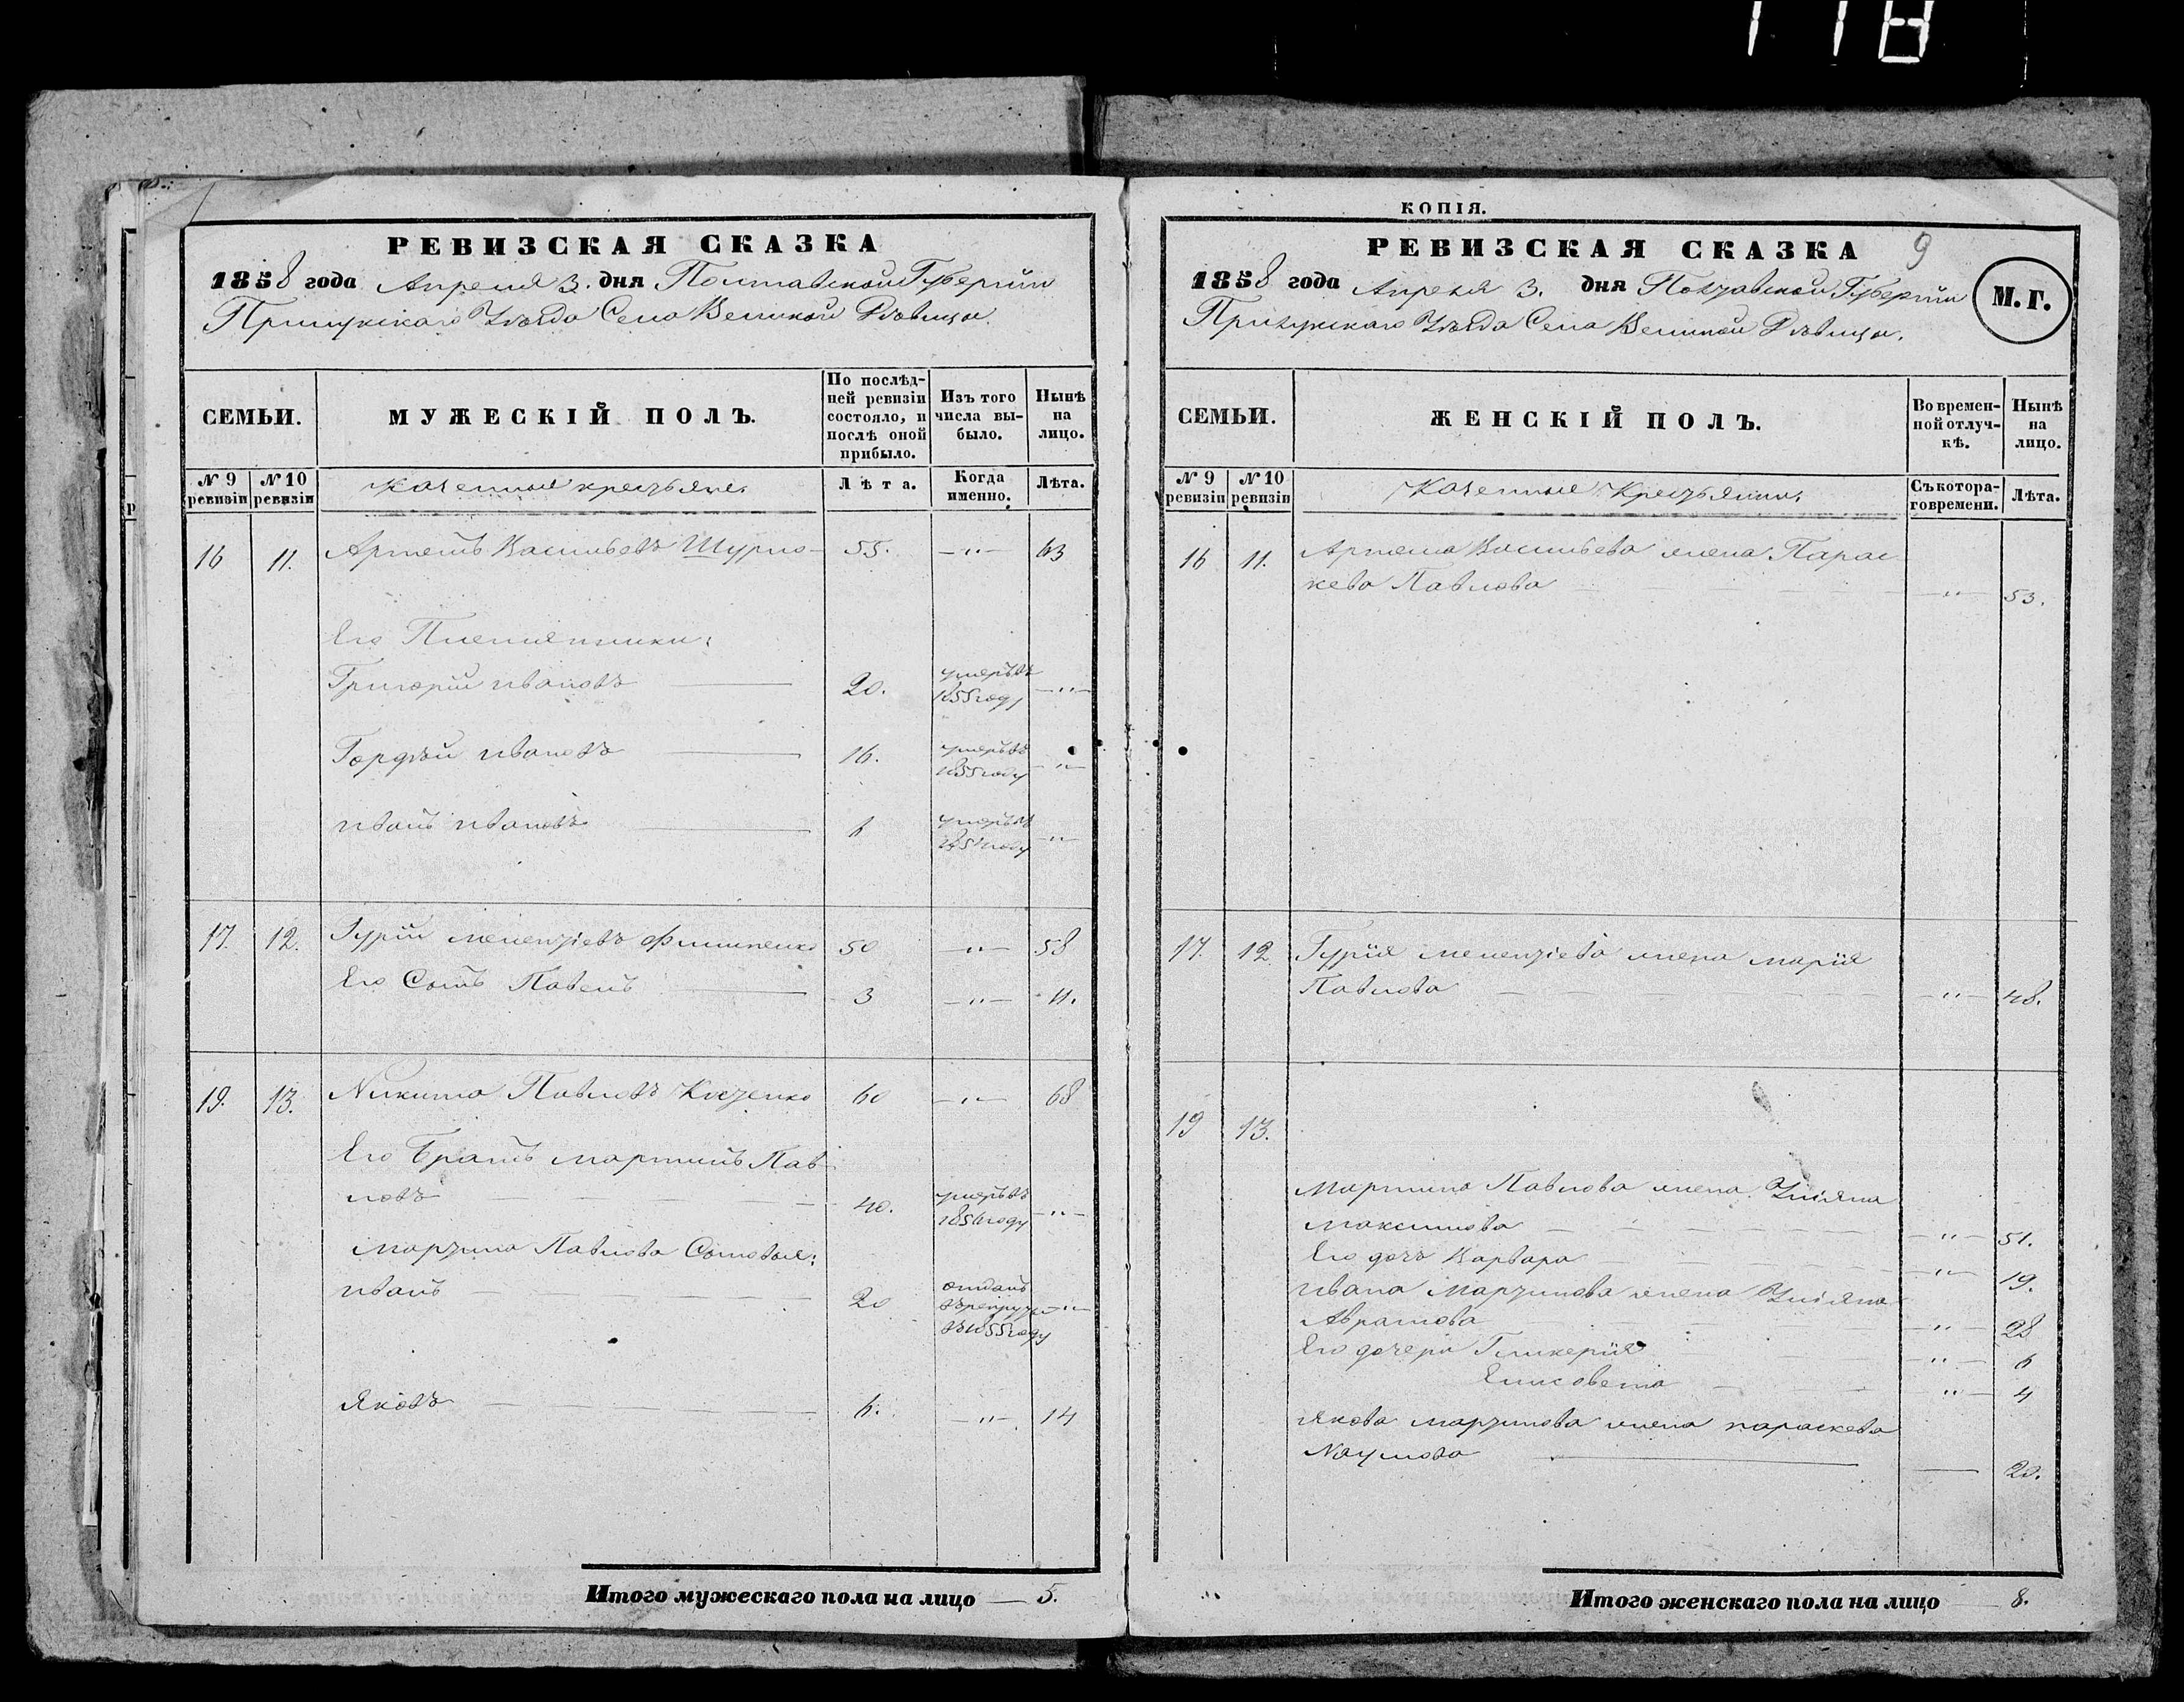 118
РЕВИЗСКАЯ СКАЗКА
1858 года Апреля 3. дня Полтавской Губернии
Прилукскаго Уезда Села Великой Девицы.
СЕМЬИ.
МУЖЕСКІЙ ПОЛЪ.
По послѣдней ревизіи состояло, и послѣ оной прибыло.
Изъ того числа выбыло.
Нынѣ на лицо.
№ 9 ревизіи
№ 10 ревизіи
Казенные крестьяне.
Лѣта.
Когда именно.
Лѣта.
16 11. Артемъ Васильевъ Шурло 55. —"— 63
Его Племянники:
Григорій Ивановъ 20. умеръ въ 1855 году —"—
Гордѣй Ивановъ 16. умеръ въ 1855 году —"—
Иванъ Ивановъ 6 умеръ въ году —"—
17. 12. Гурій Мелентіевъ Филипенко 50 —"— 58
Его Сынъ Павелъ 3 —"— 11.
19. 13. Никита Павловъ Костенко 60 —"— 68
Его Братъ Мартинъ Пав-
ловъ 40. умеръ въ 1856 году —"—
Мартина Павлова Сыновья:
Иванъ 20 отданъ въ рекруты въ 1855 году —"—
Яковъ 6. —"— 14
Итого мужескаго пола на лицо — 5.
КОПІЯ.
РЕВИЗСКАЯ СКАЗКА 9
1858 года Апреля 3. дня Полтавской Губерніи
Прилукскаго Уезда Села Великой Девицы.
М. Г.
СЕМЬИ.
ЖЕНСКІЙ ПОЛЪ.
Во временной отлучкѣ.
Нынѣ на лицо.
№ 9 ревизіи
№ 10 ревизіи
Казенные Крестьянки.
Съ котораго времени.
Лѣта.
16 11. Артема Васильева жена Парас-
кева Павлова —"— 53.
17. 12. Гурія Мелентіева жена Марія
Павлова —"— 48.
19 13.
Мартина Павлова жена Уліяна
Максимова —"— 51.
Его дочь Варвара —"— 19.
Ивана Мартинова жена Уліяна
Абрамова —"— 28
Его дочери Гликерія —"— 6
Елисавета —"— 4
Якова Мартинова жена Параскева
Наумова — 20.
Итого женскаго пола на лицо 8.